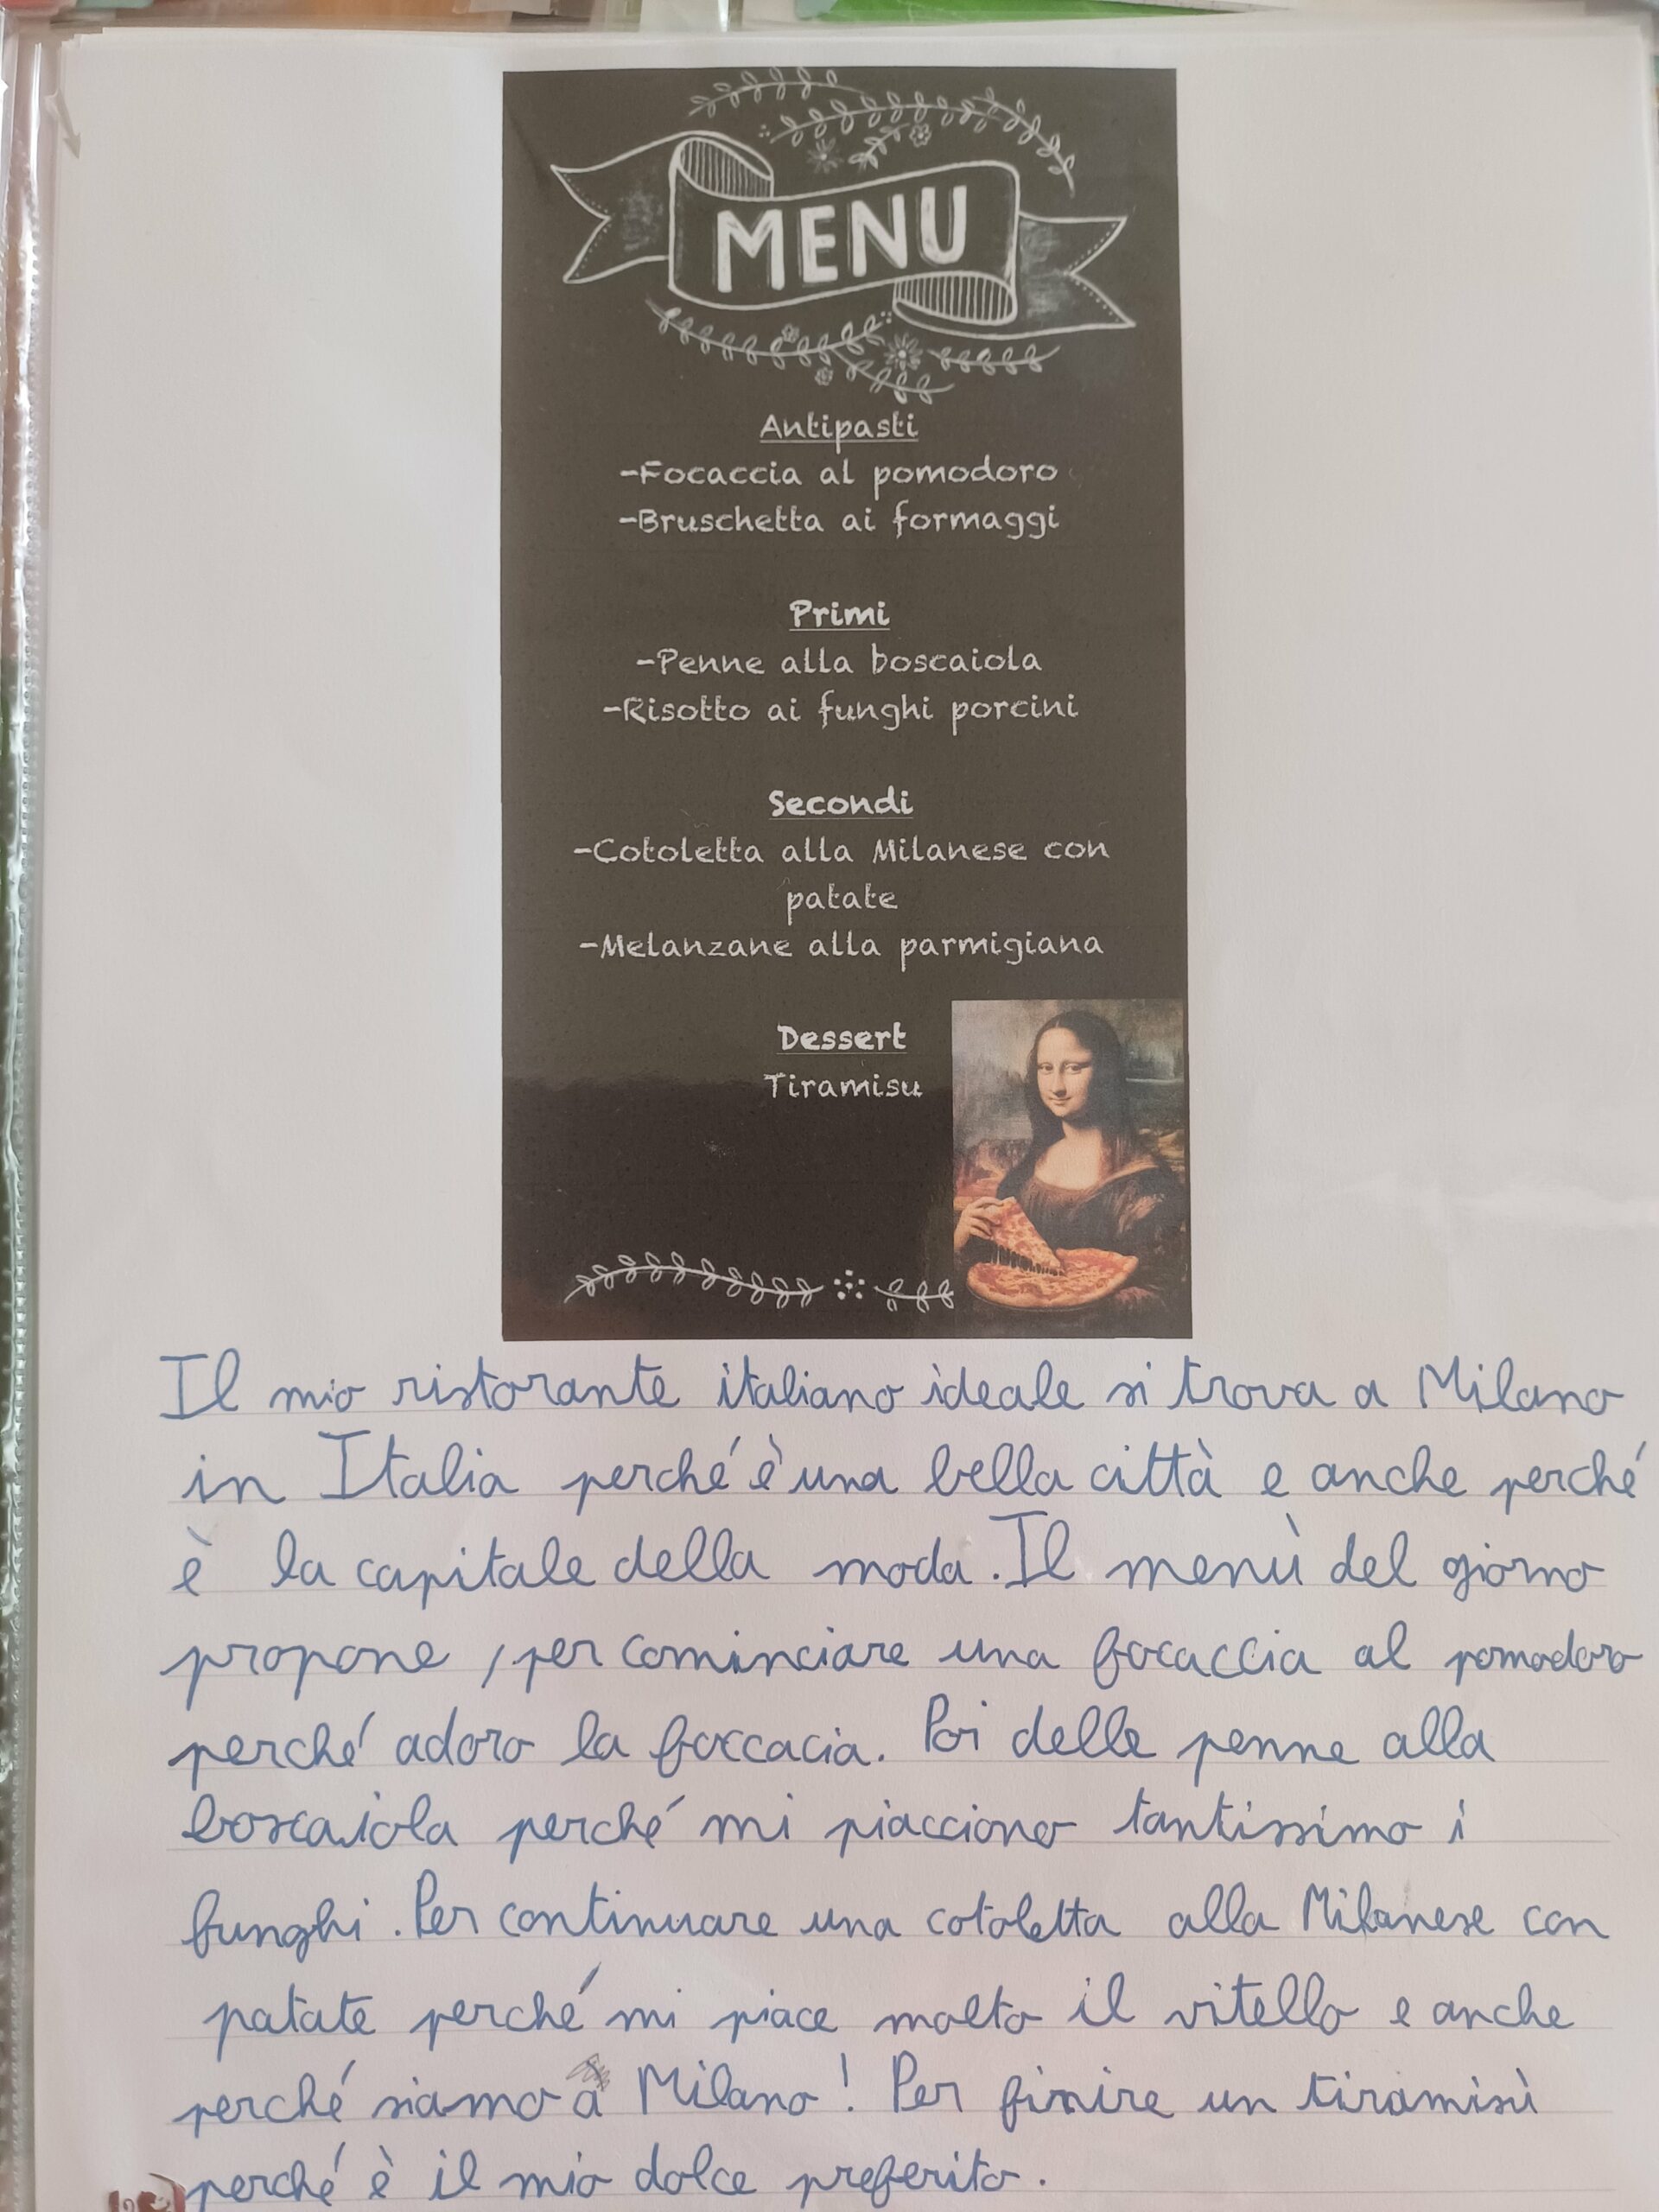 MENU
Antipasti
-Focaccia al pomodoro
-Bruschetta ai formaggi
Primi
-Penne alla boscaiola
-Risotto ai funghi porcini
Secondi
-Cotoletta alla Milanese con
patate
-Melanzane alla parmigiana
Dessert
Tiramisu
Il mio ristorante italiano ideale si trova a Milano
in Italia perché è una bella città e anche perché
è la capitale della moda. Il menù del giorno
propone, per cominciare una focaccia al pomodoro
perché adoro la foccacia. Poi delle penne alla
boscaiola perché mi piacciono tantissimo i
funghi. Per continuare una cotoletta alla Milanese con
patate perché mi piace molto il vitello e anche
perché siamo a Milano! Per finire un tiramisù
perché è il mio dolce preferito.